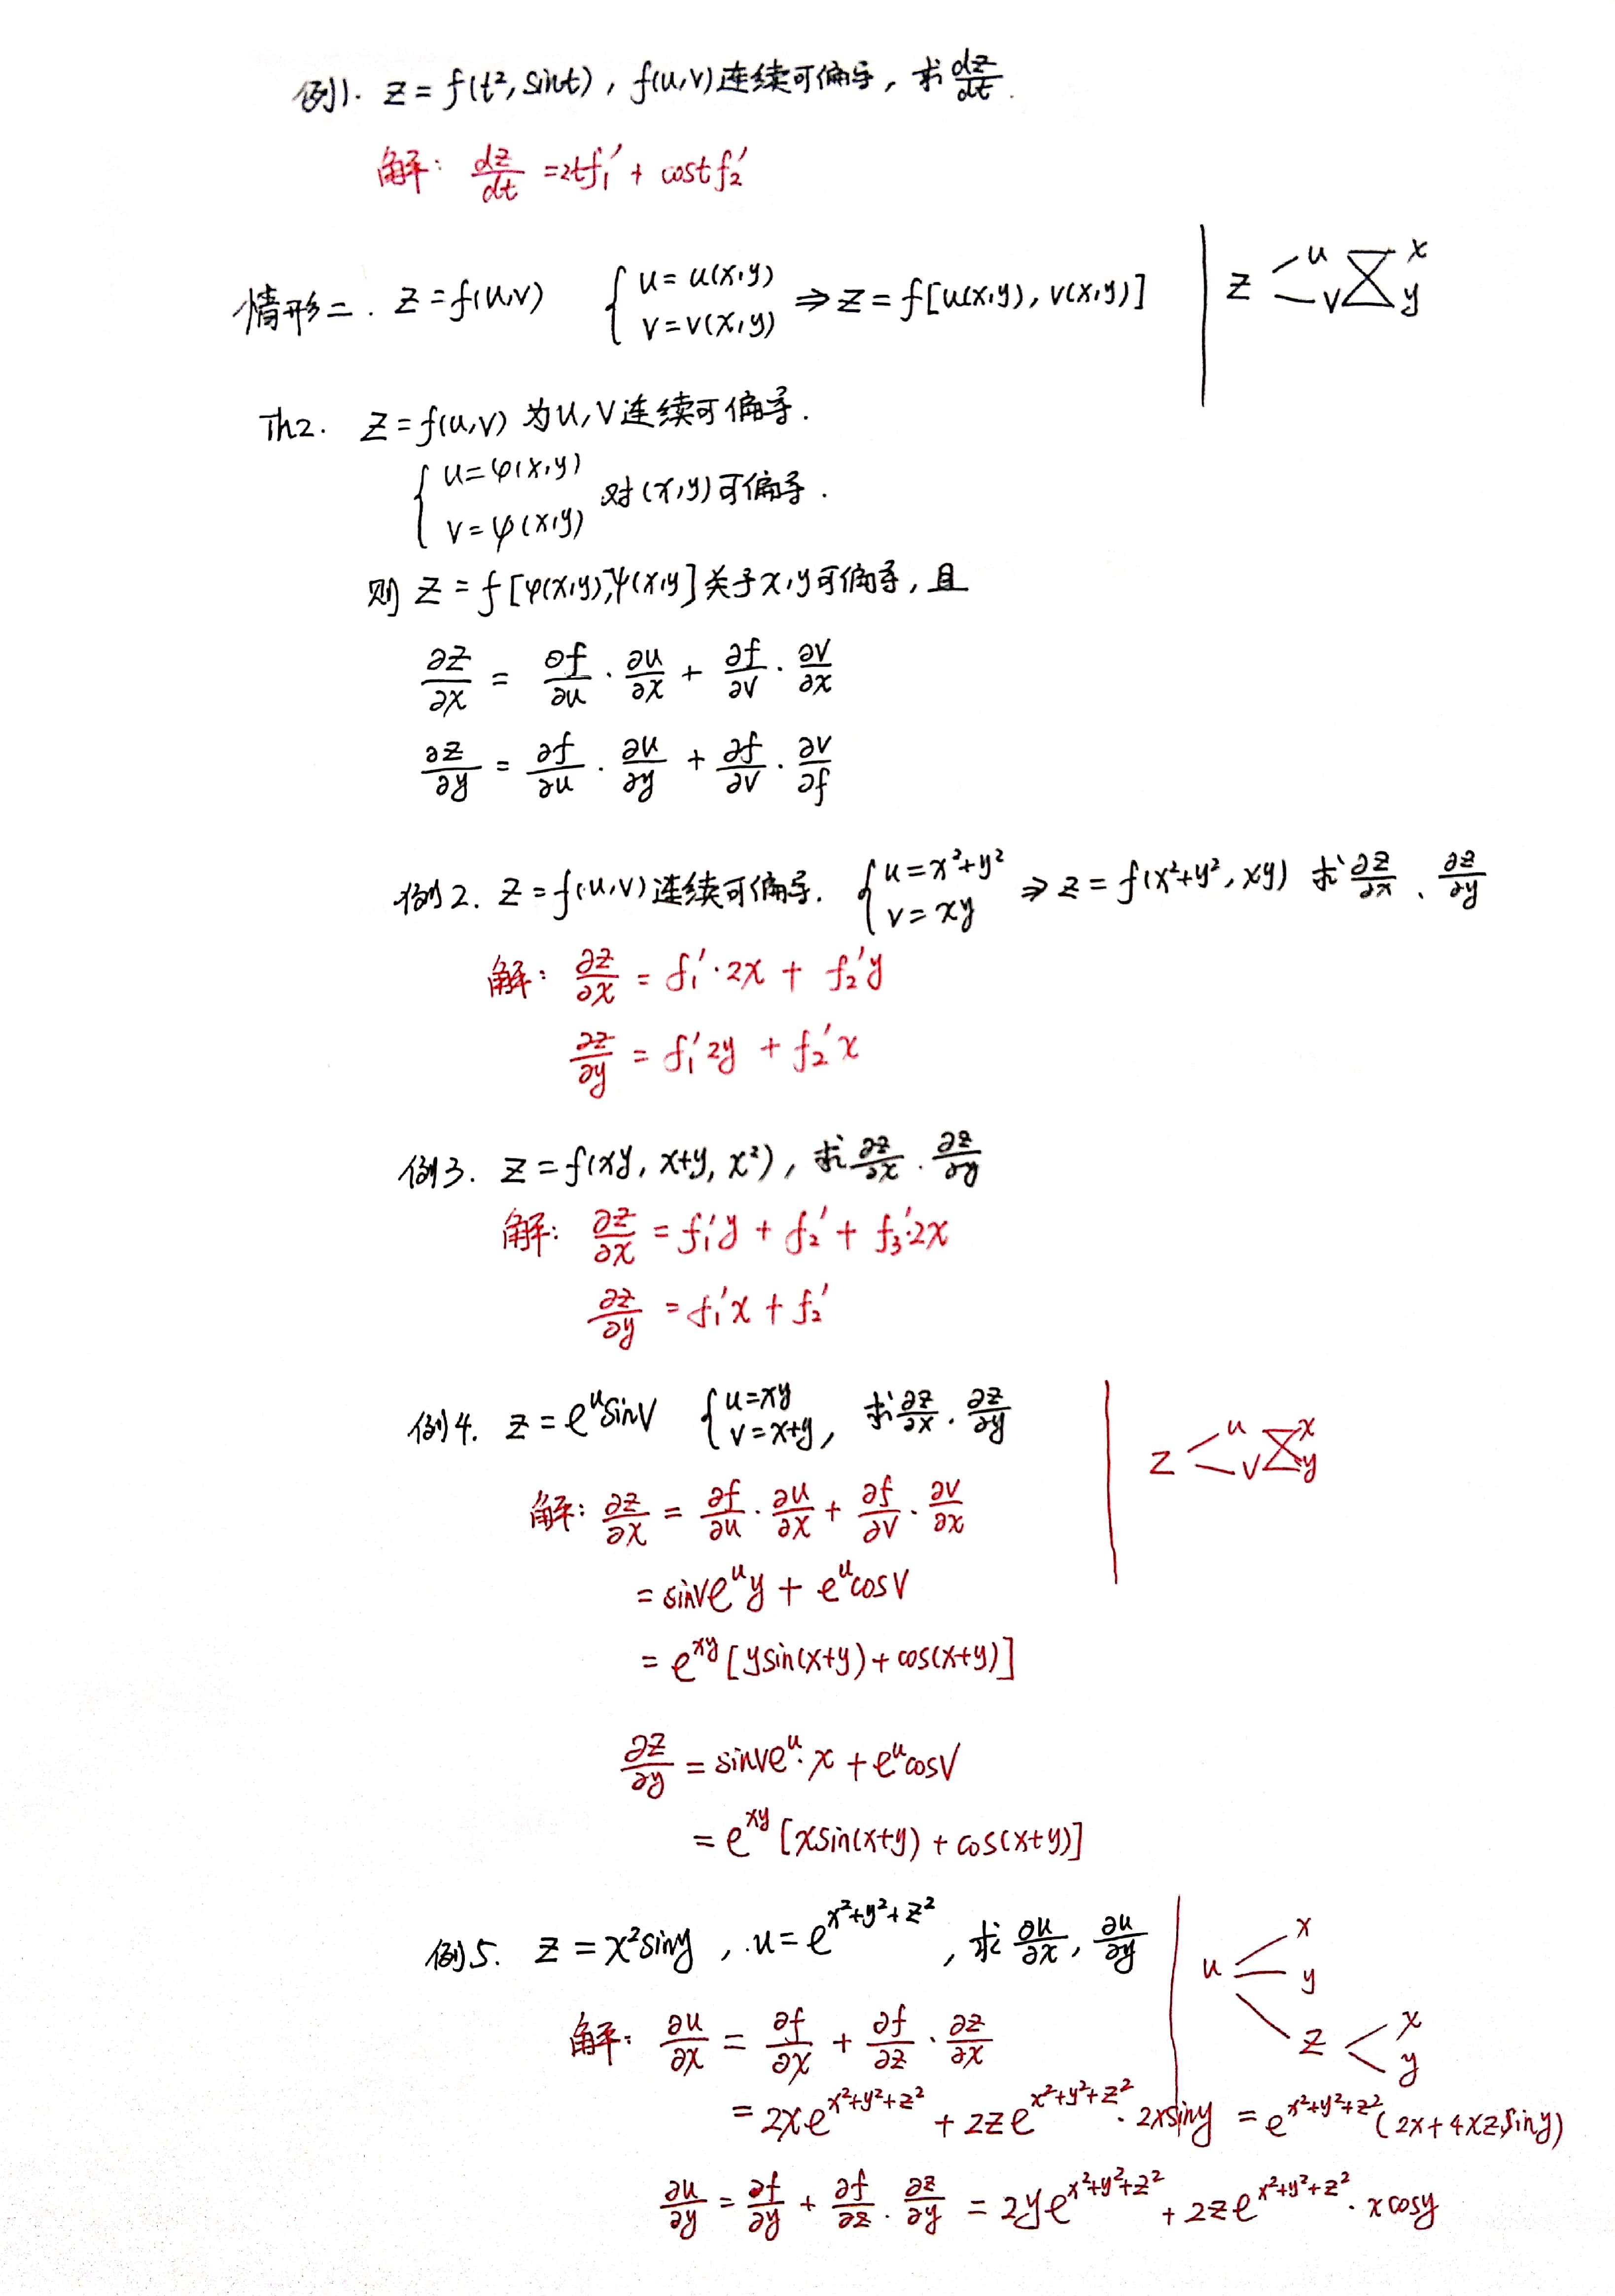 例1. z = f(t², sint), f(u,v)连续可偏导, 求 dz/dt.
解: dz/dt = 2tf₁′ + cost f₂′
情形二. z = f(u,v) { u = u(x,y) v = v(x,y) ⇒ z = f[u(x,y), v(x,y)] z u v x y
Th2. z = f(u,v) 为u,v连续可偏导.
{ u = φ(x,y) v = ψ(x,y) 对(x,y)可偏导.
则 z = f[φ(x,y),ψ(x,y] 关于x,y可偏导, 且
∂z/∂x = ∂f/∂u · ∂u/∂x + ∂f/∂v · ∂v/∂x
∂z/∂y = ∂f/∂u · ∂u/∂y + ∂f/∂v · ∂v/∂f
例2. z = f(u,v)连续可偏导. { u = x²+y² v = xy ⇒ z = f(x²+y², xy) 求 ∂z/∂x 、 ∂z/∂y
解: ∂z/∂x = f₁′·2x + f₂′y
∂z/∂y = f₁′2y + f₂′x
例3. z = f(xy, x+y, x²), 求 ∂z/∂x . ∂z/∂y
解: ∂z/∂x = f₁′y + f₂′ + f₃′·2x
∂z/∂y = f₁′x + f₂′
例4. z = eᵘsinv { u=xy v=x+y, 求 ∂z/∂x . ∂z/∂y z u v x y
解: ∂z/∂x = ∂f/∂u · ∂u/∂x + ∂f/∂v · ∂v/∂x
= sinveᵘy + eᵘcosv
= e^{xy}[ysin(x+y) + cos(x+y)]
∂z/∂y = sinveᵘ·x + eᵘcosv
= e^{xy}[xsin(x+y) + cos(x+y)]
例5. z = x²siny , u = e^{x²+y²+z²}, 求 ∂u/∂x , ∂u/∂y u x y z x y
解: ∂u/∂x = ∂f/∂x + ∂f/∂z · ∂z/∂x
= 2xe^{x²+y²+z²} + 2ze^{x²+y²+z²} · 2xsiny = e^{x²+y²+z²}(2x+4xzsiny)
∂u/∂y = ∂f/∂y + ∂f/∂z · ∂z/∂y = 2ye^{x²+y²+z²} + 2ze^{x²+y²+z²} · xcosy